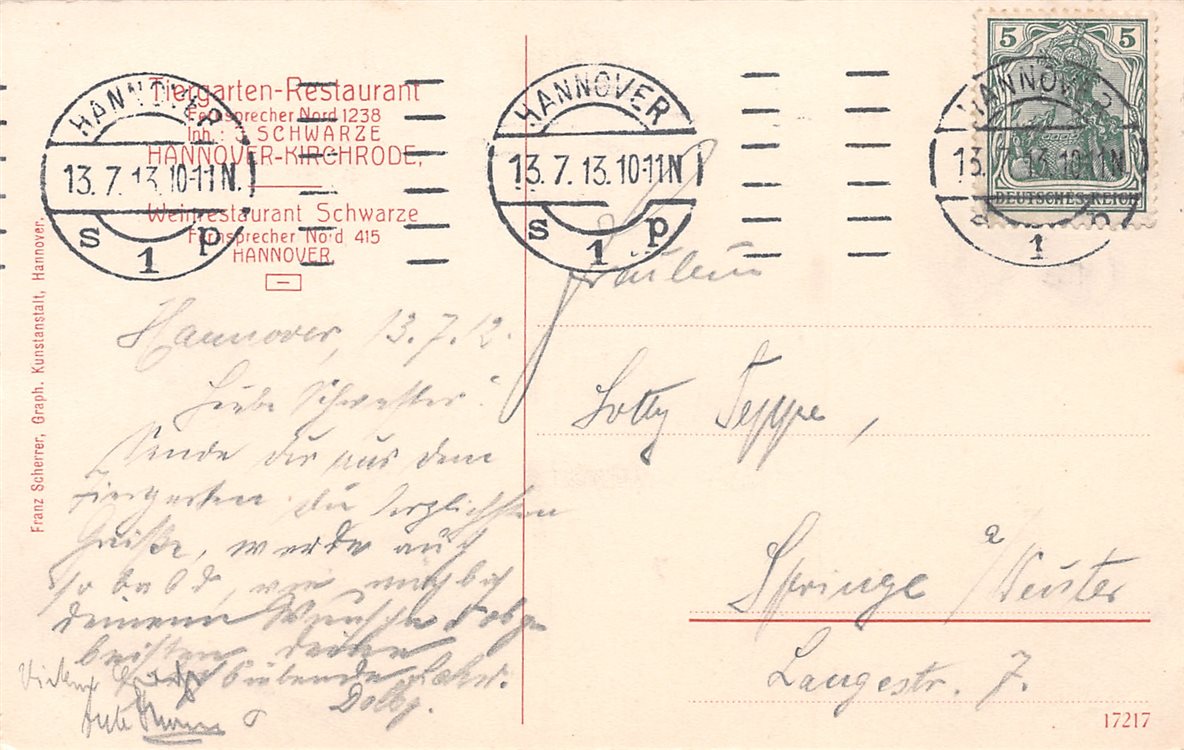 Tiergarten-Restaurant
Fernsprecher Nord 1238
Inh.: SCHWARZE
HANNOVER-KIRCHRODE,
Weinrestaurant Schwarze
Fernsprecher Nord 415
HANNOVER.
Franz Scherrer, Graph. Kunstanstalt, Hannover.
HANNOVER
13.7.13.10-11N.
s 1 p
HANNOVER
13.7.13.10-11N
s 1 p
HANNOVER
13.7.13.10-11N
s 1 p
5 5
DEUTSCHES REICH
Hannover, 13.7.12.
Liebe Schwester!
Sende dir aus dem
Tiergarten die herzlichsten
Grüße, werde auch
so bald, wie möglich
deinem Wunsche Folge
leisten deine
liebende
Fräulein
Lotty Teppe,
Springe a/
Langestr. 7.
17217